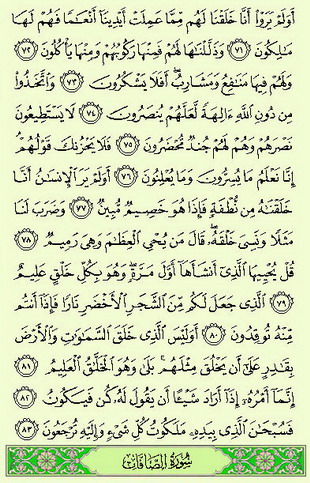 أَوَلَمْ يَرَوْا۟ أَنَّا خَلَقْنَا لَهُم مِّمَّا عَمِلَتْ أَيْدِينَآ أَنْعَـٰمًا فَهُمْ لَهَا
مَـٰلِكُونَ ٧١ وَذَلَّلْنَـٰهَا لَهُمْ فَمِنْهَا رَكُوبُهُمْ وَمِنْهَا يَأْكُلُونَ ٧٢
وَلَهُمْ فِيهَا مَنَـٰفِعُ وَمَشَارِبُ ۖ أَفَلَا يَشْكُرُونَ ٧٣ وَٱتَّخَذُوا۟
مِن دُونِ ٱللَّهِ ءَالِهَةً لَّعَلَّهُمْ يُنصَرُونَ ٧٤ لَا يَسْتَطِيعُونَ
نَصْرَهُمْ وَهُمْ لَهُمْ جُندٌ مُّحْضَرُونَ ٧٥ فَلَا يَحْزُنكَ قَوْلُهُمْ ۘ
إِنَّا نَعْلَمُ مَا يُسِرُّونَ وَمَا يُعْلِنُونَ ٧٦ أَوَلَمْ يَرَ ٱلْإِنسَـٰنُ أَنَّا
خَلَقْنَـٰهُ مِن نُّطْفَةٍ فَإِذَا هُوَ خَصِيمٌ مُّبِينٌ ٧٧ وَضَرَبَ لَنَا
مَثَلًا وَنَسِىَ خَلْقَهُۥ ۖ قَالَ مَن يُحْىِ ٱلْعِظَـٰمَ وَهِىَ رَمِيمٌ ٧٨
قُلْ يُحْيِيهَا ٱلَّذِىٓ أَنشَأَهَآ أَوَّلَ مَرَّةٍ ۖ وَهُوَ بِكُلِّ خَلْقٍ عَلِيمٌ
٧٩ ٱلَّذِى جَعَلَ لَكُم مِّنَ ٱلشَّجَرِ ٱلْأَخْضَرِ نَارًا فَإِذَآ أَنتُم
مِّنْهُ تُوقِدُونَ ٨٠ أَوَلَيْسَ ٱلَّذِى خَلَقَ ٱلسَّمَـٰوَٰتِ وَٱلْأَرْضَ
بِقَـٰدِرٍ عَلَىٰٓ أَن يَخْلُقَ مِثْلَهُم ۚ بَلَىٰ وَهُوَ ٱلْخَلَّـٰقُ ٱلْعَلِيمُ ٨١
إِنَّمَآ أَمْرُهُۥٓ إِذَآ أَرَادَ شَيْـًٔا أَن يَقُولَ لَهُۥ كُن فَيَكُونُ ٨٢
فَسُبْحَـٰنَ ٱلَّذِى بِيَدِهِۦ مَلَكُوتُ كُلِّ شَىْءٍ وَإِلَيْهِ تُرْجَعُونَ ٨٣
سُورَةُ الصَّافَّاتِ